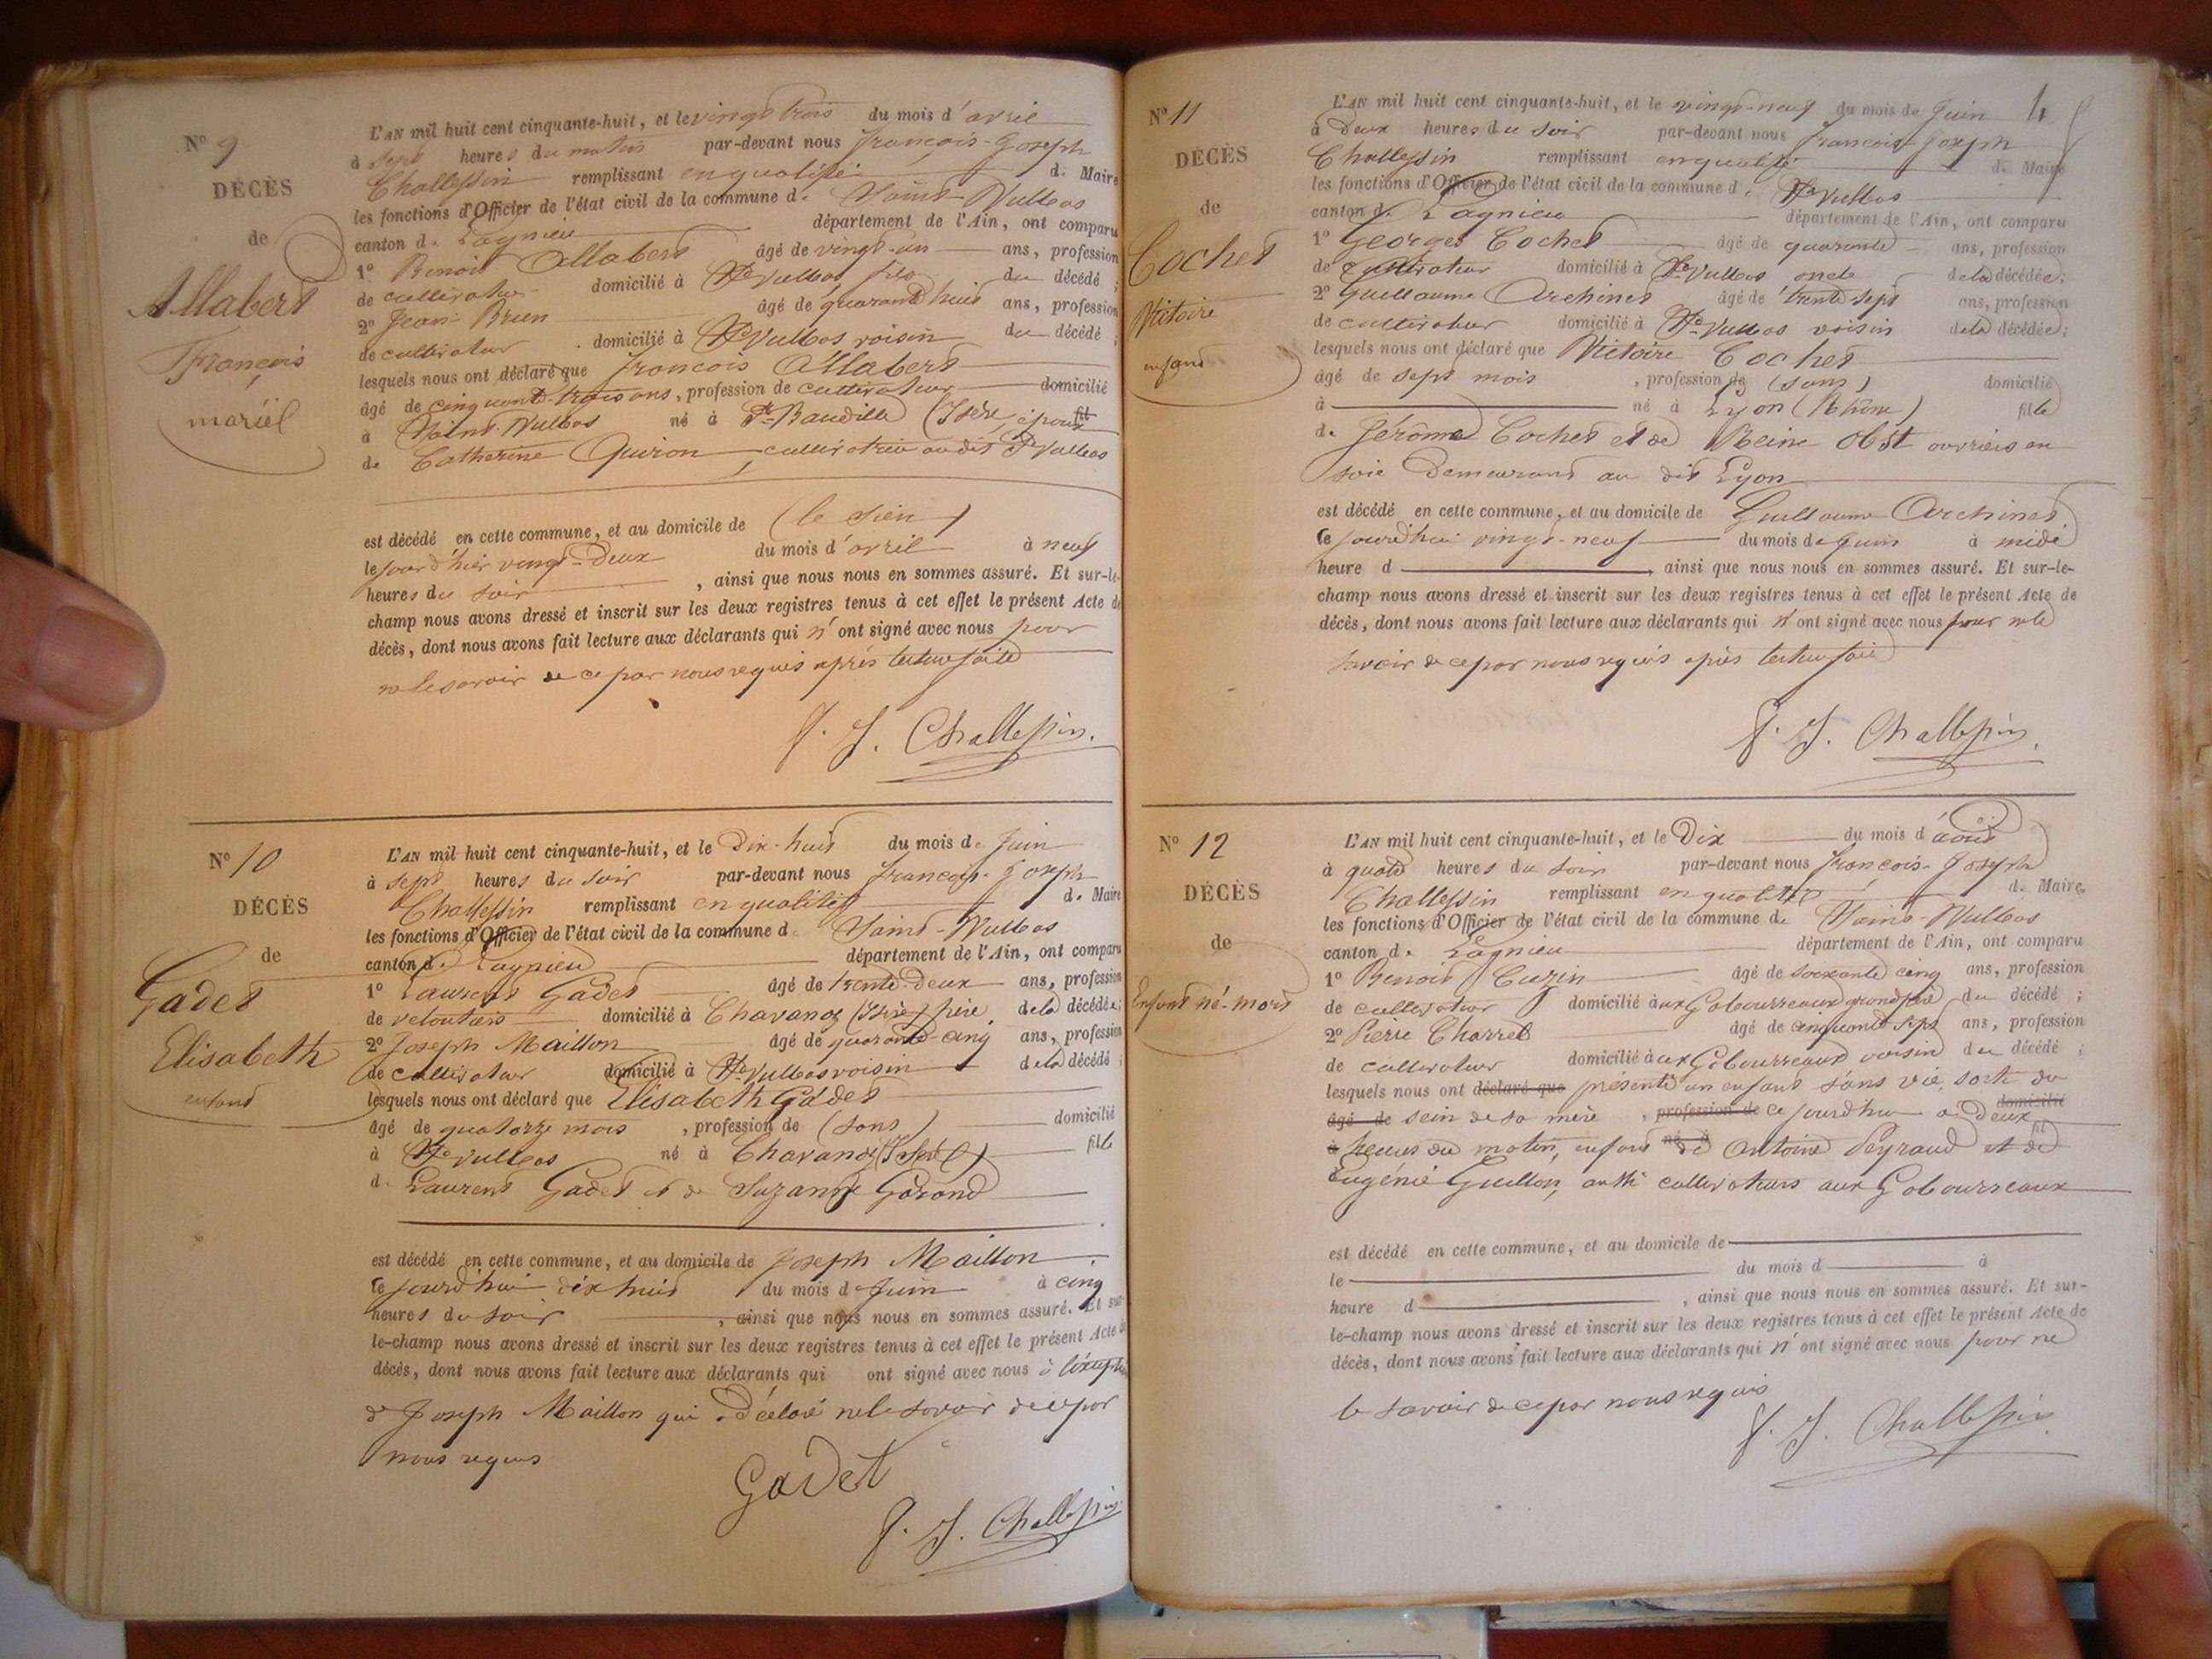 N° 9
DÉCÈS
de
Allabert
François
mariél
L'AN mil huit cent cinquante-huit, et le vingt trois du mois d'avril
à sept heures du matin par-devant nous françois-Joseph
Challessin remplissant en qualité d. Maire
les fonctions d'Officier de l'état civil de la commune d. Saint-Vulbas
canton d. Lagnieu département de l'Ain, ont comparu
1° Benoit Allabert âgé de vingt-un ans, profession
de cultivateur domicilié à St Vulbas fils du décédé ;
2° Jean Brun âgé de quarante huit ans, profession
de cultivateur domicilié à St Vulbas voisin du décédé ;
lesquels nous ont déclaré que françois Allabert
âgé de cinquante-trois ans, profession de cultivateur domicilié
à Saint-Vulbas né à St-Baudille (Isère, époux fil
de Catherine Quiron cultivatrice au dit St Vulbas
est décédé en cette commune, et au domicile de (le sien)
le jour d'hier vingt-deux du mois d'avril à neuf
heures du soir , ainsi que nous nous en sommes assuré. Et sur-le-
champ nous avons dressé et inscrit sur les deux registres tenus à cet effet le présent Acte de
décès, dont nous avons fait lecture aux déclarants qui n'ont signé avec nous pour
ne le savoir de ce par nous requis après lecture faite
f. J. Challessin.
N° 10
DÉCÈS
de
Gadet
Elisabeth
enfant
L'AN mil huit cent cinquante-huit, et le Dix-huit du mois de Juin
à sept heures du soir par-devant nous françois-Joseph
Challessin remplissant en qualité d. Maire
les fonctions d'Officier de l'état civil de la commune d Saint-Vulbas
canton d. Lagnieu département de l'Ain, ont comparu
1° Laurent Gadet âgé de trente-deux ans, profession
de veloutier domicilié à Chavanoz (Isère) père de la décédée;
2° Joseph Maillon âgé de quarante-cinq ans, profession
de cultivateur domicilié à St Vulbas voisin de la décédé ;
lesquels nous ont déclaré que Elisabeth Gadet
âgé de quatorze mois , profession de (sans) domicilié
à St Vulbas né à Chavanoz (Isère) fille
d. Laurent Gadet et de Suzanne
est décédé en cette commune, et au domicile de Joseph Maillon
le jourd'hui dix huit du mois de Juin à cinq
heures du soir , ainsi que nous nous en sommes assuré. Et sur
le-champ nous avons dressé et inscrit sur les deux registres tenus à cet effet le présent Acte de
décès, dont nous avons fait lecture aux déclarants qui ont signé avec nous à l'exception
de Joseph Maillon qui a déclaré ne le savoir de ce par
nous requis
Gadet
f. J. Challessin
4
N° 11
DÉCÈS
de
Cochet
Victoire
enfant
L'AN mil huit cent cinquante-huit, et le vingt-neuf du mois de Juin
à Deux heures du soir par-devant nous françois Joseph
Challessin remplissant en qualité d. Maire
les fonctions d'Officier de l'état civil de la commune d. St Vulbas
canton d. Lagnieu département de l'Ain, ont comparu
1° Georges Cochet âgé de quarante ans, profession
de cultivateur domicilié à St Vulbas oncle de la décédée;
2° Guillaume Archinet âgé de trente-sept ans, profession
de cultivateur domicilié à St Vulbas voisin de la décédée;
lesquels nous ont déclaré que Victoire Cochet
âgé de sept mois , profession de (sans) domicilié
à né à Lyon (Rhône) fille
d. Jérôme Cochet et de Reine Obst ouvriers en
soie Demeurant au dit Lyon
est décédé en cette commune, et au domicile de Guillaume Archinet
le jourd'hui vingt-neuf du mois de Juin à midi
heure d , ainsi que nous nous en sommes assuré. Et sur-le-
champ nous avons dressé et inscrit sur les deux registres tenus à cet effet le présent Acte de
décès, dont nous avons fait lecture aux déclarants qui n'ont signé avec nous pour ne le
savoir de ce par nous requis après lecture faite
f. J. Challessin
N° 12
DÉCÈS
de
Enfant né-mort
L'AN mil huit cent cinquante-huit, et le Dix du mois d'août
à quatre heures du soir par-devant nous françois-Joseph
Challessin remplissant en qualité d. Maire
les fonctions d'Officier de l'état civil de la commune d. Saint-Vulbas
canton d. Lagnieu département de l'Ain, ont comparu
1° Benoit Cuzin âgé de soixante cinq ans, profession
de cultivateur domicilié aux Gabourreaux grand père du décédé ;
2° Pierre Charret âgé de cinquante sept ans, profession
de cultivateur domicilié aux Gabourreaux voisin du décédé ;
lesquels nous ont déclaré que présenté un enfant sans vie, sorti du
âgé de sein de sa mère , profession de ce jourd'hui à Deux domicilié
à heures du matin, enfant né à de Antoine Peyraud et de fil
Eugénie Guillon, cultivateurs aux Gabourreaux
est décédé en cette commune, et au domicile de
le du mois d à
heure d , ainsi que nous nous en sommes assuré. Et sur-
le-champ nous avons dressé et inscrit sur les deux registres tenus à cet effet le présent Acte de
décès, dont nous avons fait lecture aux déclarants qui n'ont signé avec nous pour ne
le savoir de ce par nous requis
f. J. Challessin